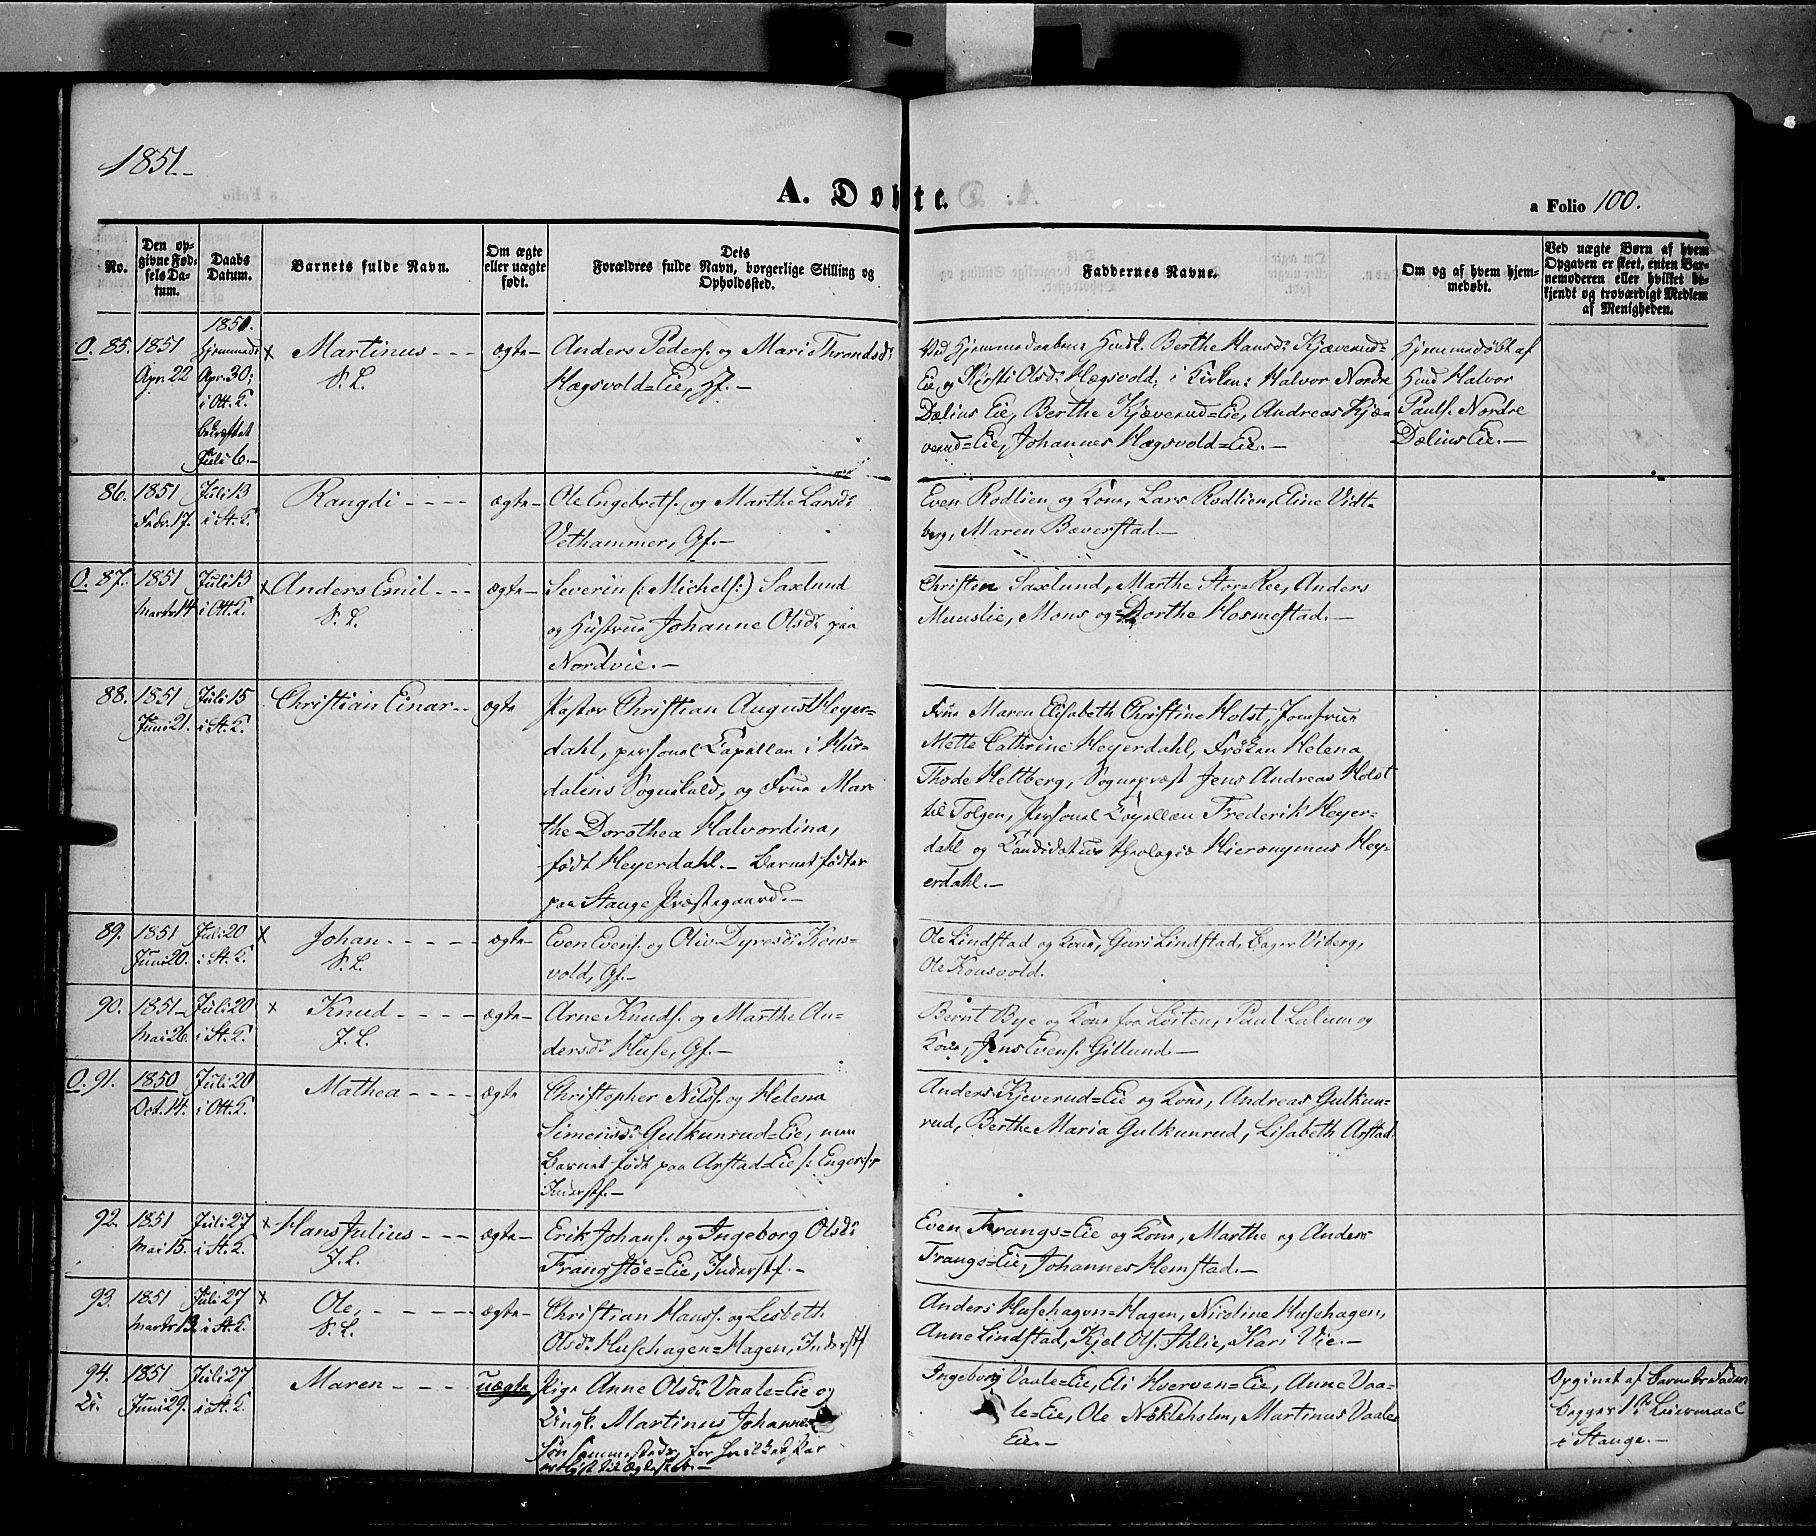 1851.-
A. Døbte.
a Folio 100.
No.
Den op-
givne Fød-
sels Da-
tum.
Daabs
Datum.
Barnets fulde Navn.
Om ægte
eller uægte
født.
Dets
Forældres fulde Navn, borgerlige Stilling og
Opholdssted.
Faddernes Navne.
Om og af hvem hjem-
medøbt.
Ved uægte Børn af hvem
Opgaven er skeet, enten Bar-
nemoderen eller hvilket be-
kjendt og troværdigt Medlem
af Menigheden.
O. 85.
1851
Apr. 22
1851.
Hjemmed.
Apr. 30;
i Ott. K.
Bekræftet
Juli 6.-
x Martinus - - -
S. L.
ægte-
Anders Peders. og Mari Throndsd:
Hægsvold=Eie, Gf.-
Ved Hjemmedaaben: Huusk. Berthe Hansd: Kjæverud=
Eie, og Kirsti Olsd: Hægsvold; i Kirken: Halvor Nordre
Dælins Eie, Berthe Kjæverud=Eie, Andreas Kjæ-
verud=Eie, Johannes Hægsvold=Eie.-
Hjemmedøbt af
Huusm. Halvor
Pauls. Nordre
Dælins Eie.-
86.
1851
Febr. 17.
Juli 13
i St. K.
Rangdi - - - -
ægte-
Ole Engebrets. og Marthe Larsd:
Vethammer, Gf.-
Even Rodlien og Kone, Lars Rodlien, Eline Vidt-
berg, Maren Bæverstad.-
O. 87.
1851
Marts 14
Juli 13
i Ott. K.
x Anders Emil - - -
S. L.
ægte-
Severin (: Michels :) Saxlund
og Hustrue Johanne Olsd: paa
Nordvie.-
Christen Saxlund, Marthe Store Ree, Anders
Muuslie, Mons og Dorthe Hosmestad.-
88.
1851
Juni 21.
Juli 15
i St. K.
Christian Einar - -
ægte
Pastor Christian August Heyer-
dahl, personal Capellan i Hur-
dalens Sognekald, og Frue Mar-
the Dorothea Halvordina,
født Heyerdahl.- Barnet født
paa Stange Præstegaard.-
Frue Maren Elisabeth Christine Holst, Jomfrue
Mette Cathrine Heyerdahl, Frøken Helena
Thode Heltberg, Sognepræst Jens Andreas Holst
til Tolgen, personal Capellan Frederik Heyer-
dahl og Candidatus theologiæ Hieronymus Hey-
erdahl.-
89.
1851
Juni 20.
Juli 20
i St. K.
x Johan - - - - -
S. L.
ægte-
Even Evens. og Oliv Dyresd: Kons-
vold, Gf.-
Ole Lindstad og Kone, Guri Lindstad, Viberg,
Ole Konsvold.
90.
1851-
Mai 26.
Juli 20
i St. K.
x Knud - - - -
J. L.
ægte-
Arne Knuds. og Marthe An-
dersd: Huse, Gf.-
Bernt Bye og Kone fra Løiten, Paul Lalum og
Kone, Jens Evens. Gillund.-
O. 91.
1850
Oct. 14.
Juli 20
i Ott. K.
Mathea - - - -
ægte
Christopher Nils. og Helena
Simensd: Gulkunrud=Eie, men
Barnet født paa Arstad=Eie
Inderstf.-
Anders Kjeverud=Eie og Kone, Andreas Gulkun-
rud, Berthe Maria Gulkunrud, Lisabeth Arstad.
92.
1851
Mai 15.
Juli 27
i St. K.
x Hans Julius - - -
J. L.
ægte-
Erik Johans. og Ingeborg Olsd:
Frangstøe=Eie, Inderstf.-
Even Frangs=Eie og Kone, Marthe og Anders
Frangs=Eie, Johannes Hemstad.-
93.
1851
Marts 13.
Juli 27
i St. K.
x Ole, - - - - -
S. L.
ægte-
Christian Hans. og Lisbeth
Olsd: Husehagen=Hagen, Inderstf.
Anders Husehagen=Hagen, Nicoline Husehagen,
Anne Lindstad, Kjel Ols. Ihlie, Kari Vie.-
94.
1851
Juni 29.
Juli 27
i St. K.
Maren - - - -
uægte,
Pige Anne Olsd: Vaale=Eie og
Ungk. Martinus Johannes-
søn sammesteds,
Ingeborg Vaale=Eie, Eli Hverven=Eie, Anne Vaa-
le=Eie, Ole Nøkleholm, Martinus Vaale
Eie.-
Opgivet af Barnets Fader.
Begges 1ste Leiermaal
i Stange.-